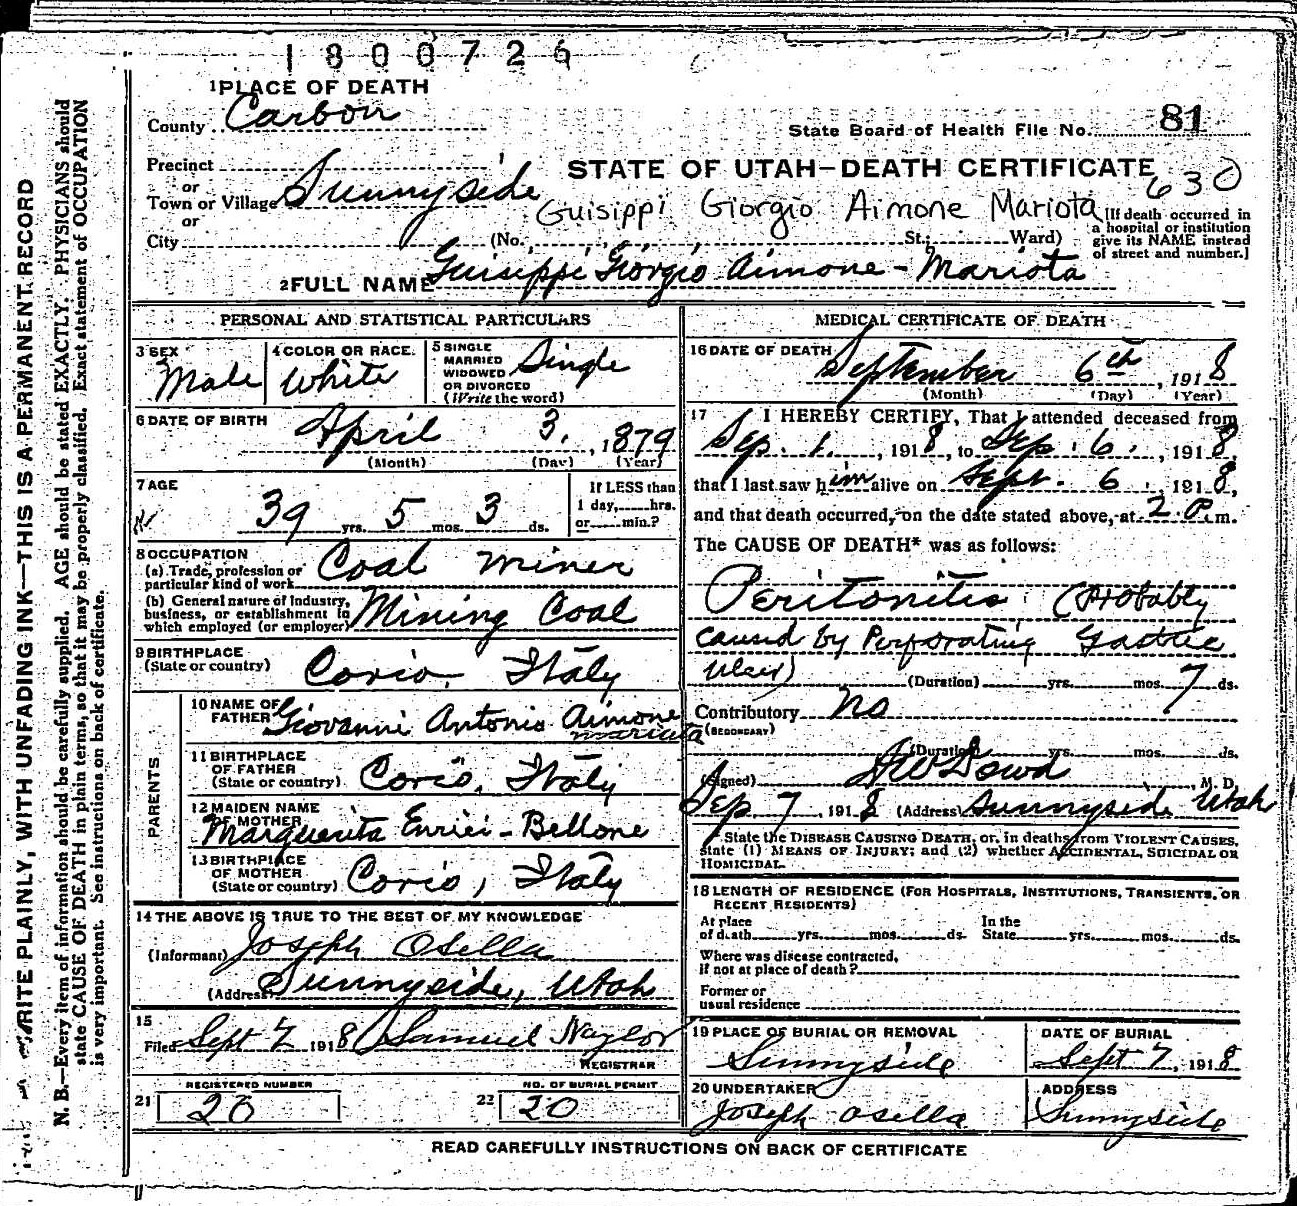 1800726
1 PLACE OF DEATH
County Carbon
State Board of Health File No. 81
Precinct
or
Town or Village Sunnyside
or
City
STATE OF UTAH—DEATH CERTIFICATE
630
Guisippi Giorgio Aimone Mariota
(No., St.; Ward)
[If death occurred in
a hospital or institution
give its NAME instead
of street and number.]
2 FULL NAME Guisippi Giorgio Aimone - Mariota
PERSONAL AND STATISTICAL PARTICULARS
3 SEX Male
4 COLOR OR RACE. White
5 SINGLE
MARRIED
WIDOWED
OR DIVORCED
(Write the word)
Single
6 DATE OF BIRTH April 3, 1879
(Month) (Day) (Year)
7 AGE
39 yrs. 5 mos. 3 ds.
If LESS than
1 day, hrs.
or min.?
8 OCCUPATION
(a) Trade, profession or
particular kind of work Coal miner
(b) General nature of industry,
business, or establishment in
which employed (or employer) Mining Coal
9 BIRTHPLACE
(State or country) Corio, Italy
PARENTS
10 NAME OF
FATHER Giovanni Antonio Aimone
mariata
11 BIRTHPLACE
OF FATHER
(State or country) Corio, Italy
12 MAIDEN NAME
OF MOTHER
Marguerita Enrici - Bellone
13 BIRTHPLACE
OF MOTHER
(State or country) Corio, Italy
14 THE ABOVE IS TRUE TO THE BEST OF MY KNOWLEDGE
(Informant) Joseph Osella
(Address) Sunnyside, Utah
15
Filed Sept 7 1918 Samuel Naylor
REGISTRAR
REGISTERED NUMBER
21 20
NO. OF BURIAL PERMIT
22 20
MEDICAL CERTIFICATE OF DEATH
16 DATE OF DEATH September 6th, 1918
(Month) (Day) (Year)
17 I HEREBY CERTIFY, That I attended deceased from
Sep. 1., 1918, to Sep. 6., 1918,
that I last saw him alive on Sept. 6. 1918,
and that death occurred, on the date stated above, at 2 P.m.
The CAUSE OF DEATH* was as follows:
Peritonitis (Probably
caused by Perforating Gastric
Ulcer)
(Duration) yrs. mos. 7 ds.
Contributory No
(SECONDARY)
(Duration) yrs. mos. ds.
(Signed) Dowd, M. D.
Sep 7, 1918 (Address) Sunnyside Utah
State the DISEASE CAUSING DEATH, or, in deaths from VIOLENT CAUSES,
state (1) MEANS OF INJURY; and (2) whether ACCIDENTAL, SUICIDAL OR
HOMICIDAL.
18 LENGTH OF RESIDENCE (FOR HOSPITALS, INSTITUTIONS, TRANSIENTS, OR
RECENT RESIDENTS)
At place
of death yrs. mos. ds.
In the
State yrs. mos. ds.
Where was disease contracted,
if not at place of death?
Former or
usual residence
19 PLACE OF BURIAL OR REMOVAL
Sunnyside
DATE OF BURIAL
Sept 7, 1918
20 UNDERTAKER
Joseph Osella
ADDRESS
Sunnyside
READ CAREFULLY INSTRUCTIONS ON BACK OF CERTIFICATE
WRITE PLAINLY, WITH UNFADING INK—THIS IS A PERMANENT RECORD
N. B.—Every item of information should be carefully supplied. AGE should be stated EXACTLY. PHYSICIANS should
state CAUSE OF DEATH in plain terms, so that it may be properly classified. Exact statement of OCCUPATION
is very important. See instructions on back of certificate.